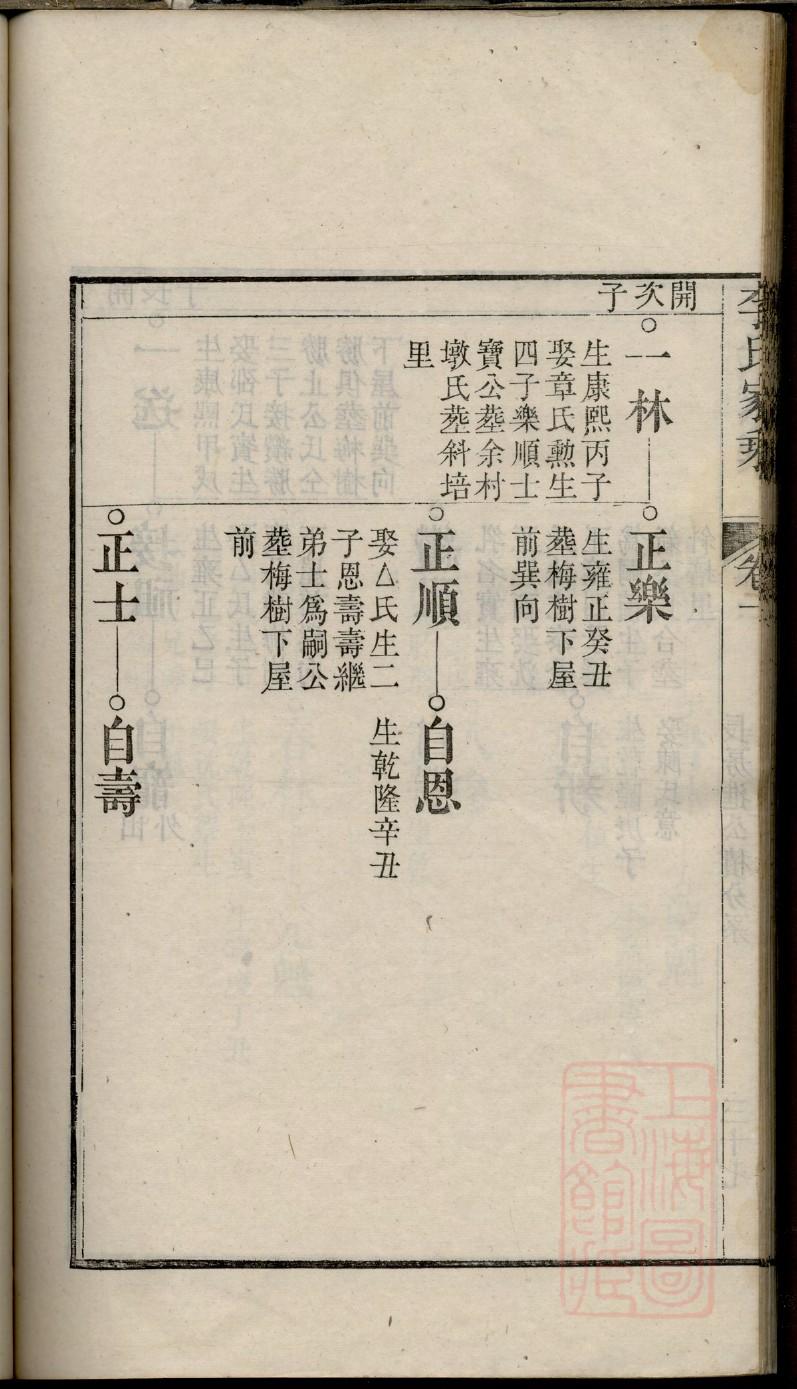 李氏家乘
卷一
開次子
一林
生康熙丙子
娶章氏勲生
四子樂順士
寶公塟余村
墩氏塟斜培
里
正樂
生雍正癸丑
塟梅樹下屋
前巽向
正順
娶△氏生二
子恩壽壽繼
弟士爲嗣公
塟梅樹下屋
前
自恩
生乾隆辛丑
正士
自壽
上海圖
書館藏